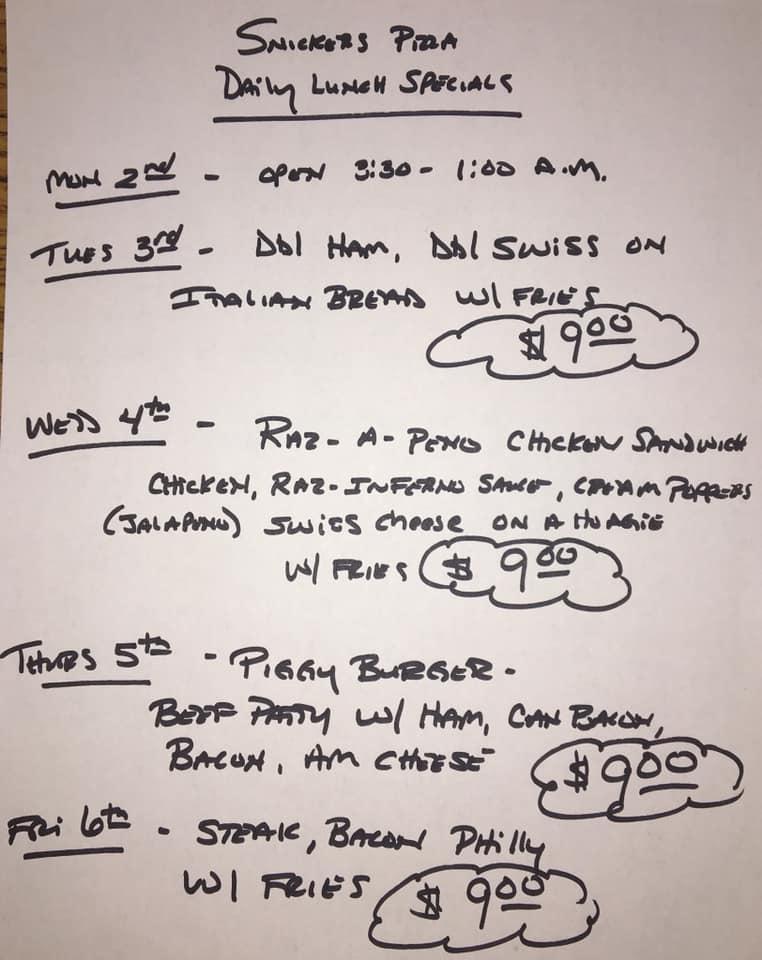 Snickers Pizza
Daily Lunch Specials
Mon 2nd - open 3:30 - 1:00 A.M.
Tues 3rd - Dbl Ham, Dbl Swiss on
Italian Bread w/ Fries
$9.00
Weds 4th - Raz-A-Peno Chicken Sandwich
Chicken, Raz-Inferno Sauce, Cream Poppers
(Jalapuno) Swiss Cheese on a Hoagie
w/ Fries $9.00
Thurs 5th - Piggy Burger -
Beef Patty w/ Ham, Can Bacon,
Bacon, Am Cheese $9.00
Fri 6th - Steak, Bacon Philly
w/ Fries $9.00